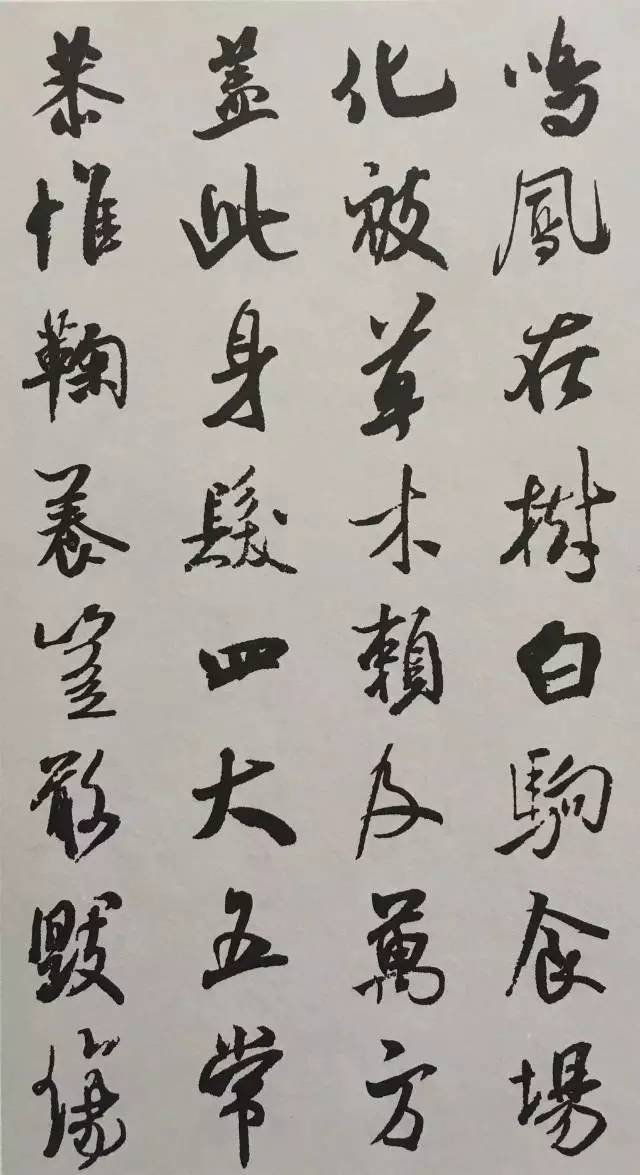 鳴鳳在樹白駒食場
化被草木賴及萬方
蓋此身髮四大五常
恭惟鞠養豈敢毀傷